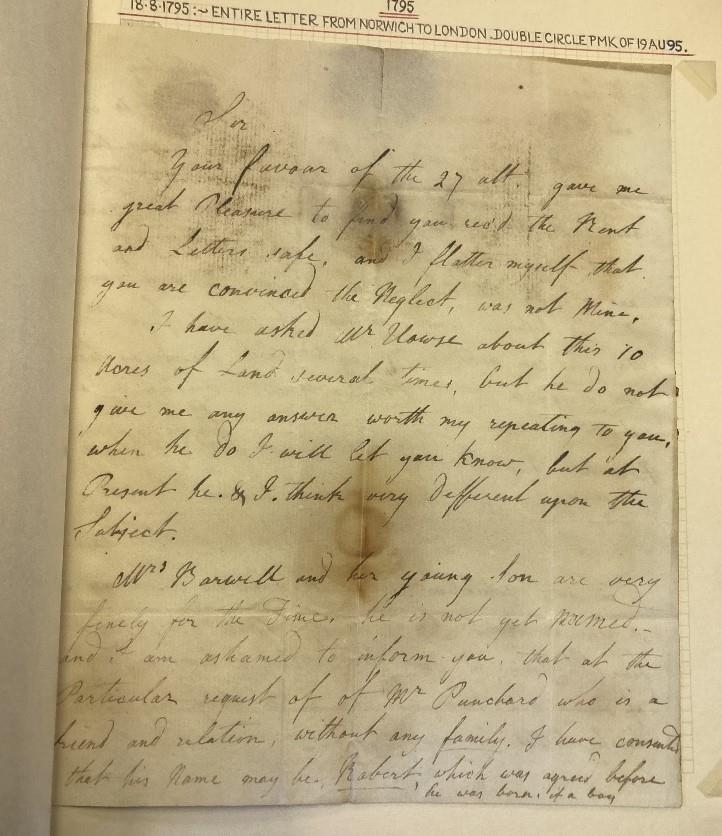 1795
18·8·1795:~ ENTIRE LETTER FROM NORWICH TO LONDON. DOUBLE CIRCLE PMK OF 19 AU 95.
Sir
Your favour of the 27 ult. gave me
great Pleasure to find you rec'd the Rent
and Letters safe, and I flatter myself that
you are convinced the Neglect, was not Mine,
I have asked Mr Howse about this 10
Acres of Land several times, but he do not
give me any answer worth my repeating to you,
when he do I will let you know, but at
Present he & I think very Defferent upon the
Subject.
Mrs Barwell and her young Son are very
finely for the Time, he is not yet Named,-
and I am ashamed to inform you, that at the
Particular request of of Mr Punchard who is a
friend and relation, without any family. I have consented
that his Name may be Robert, which was agreed before
he was born. if a boy